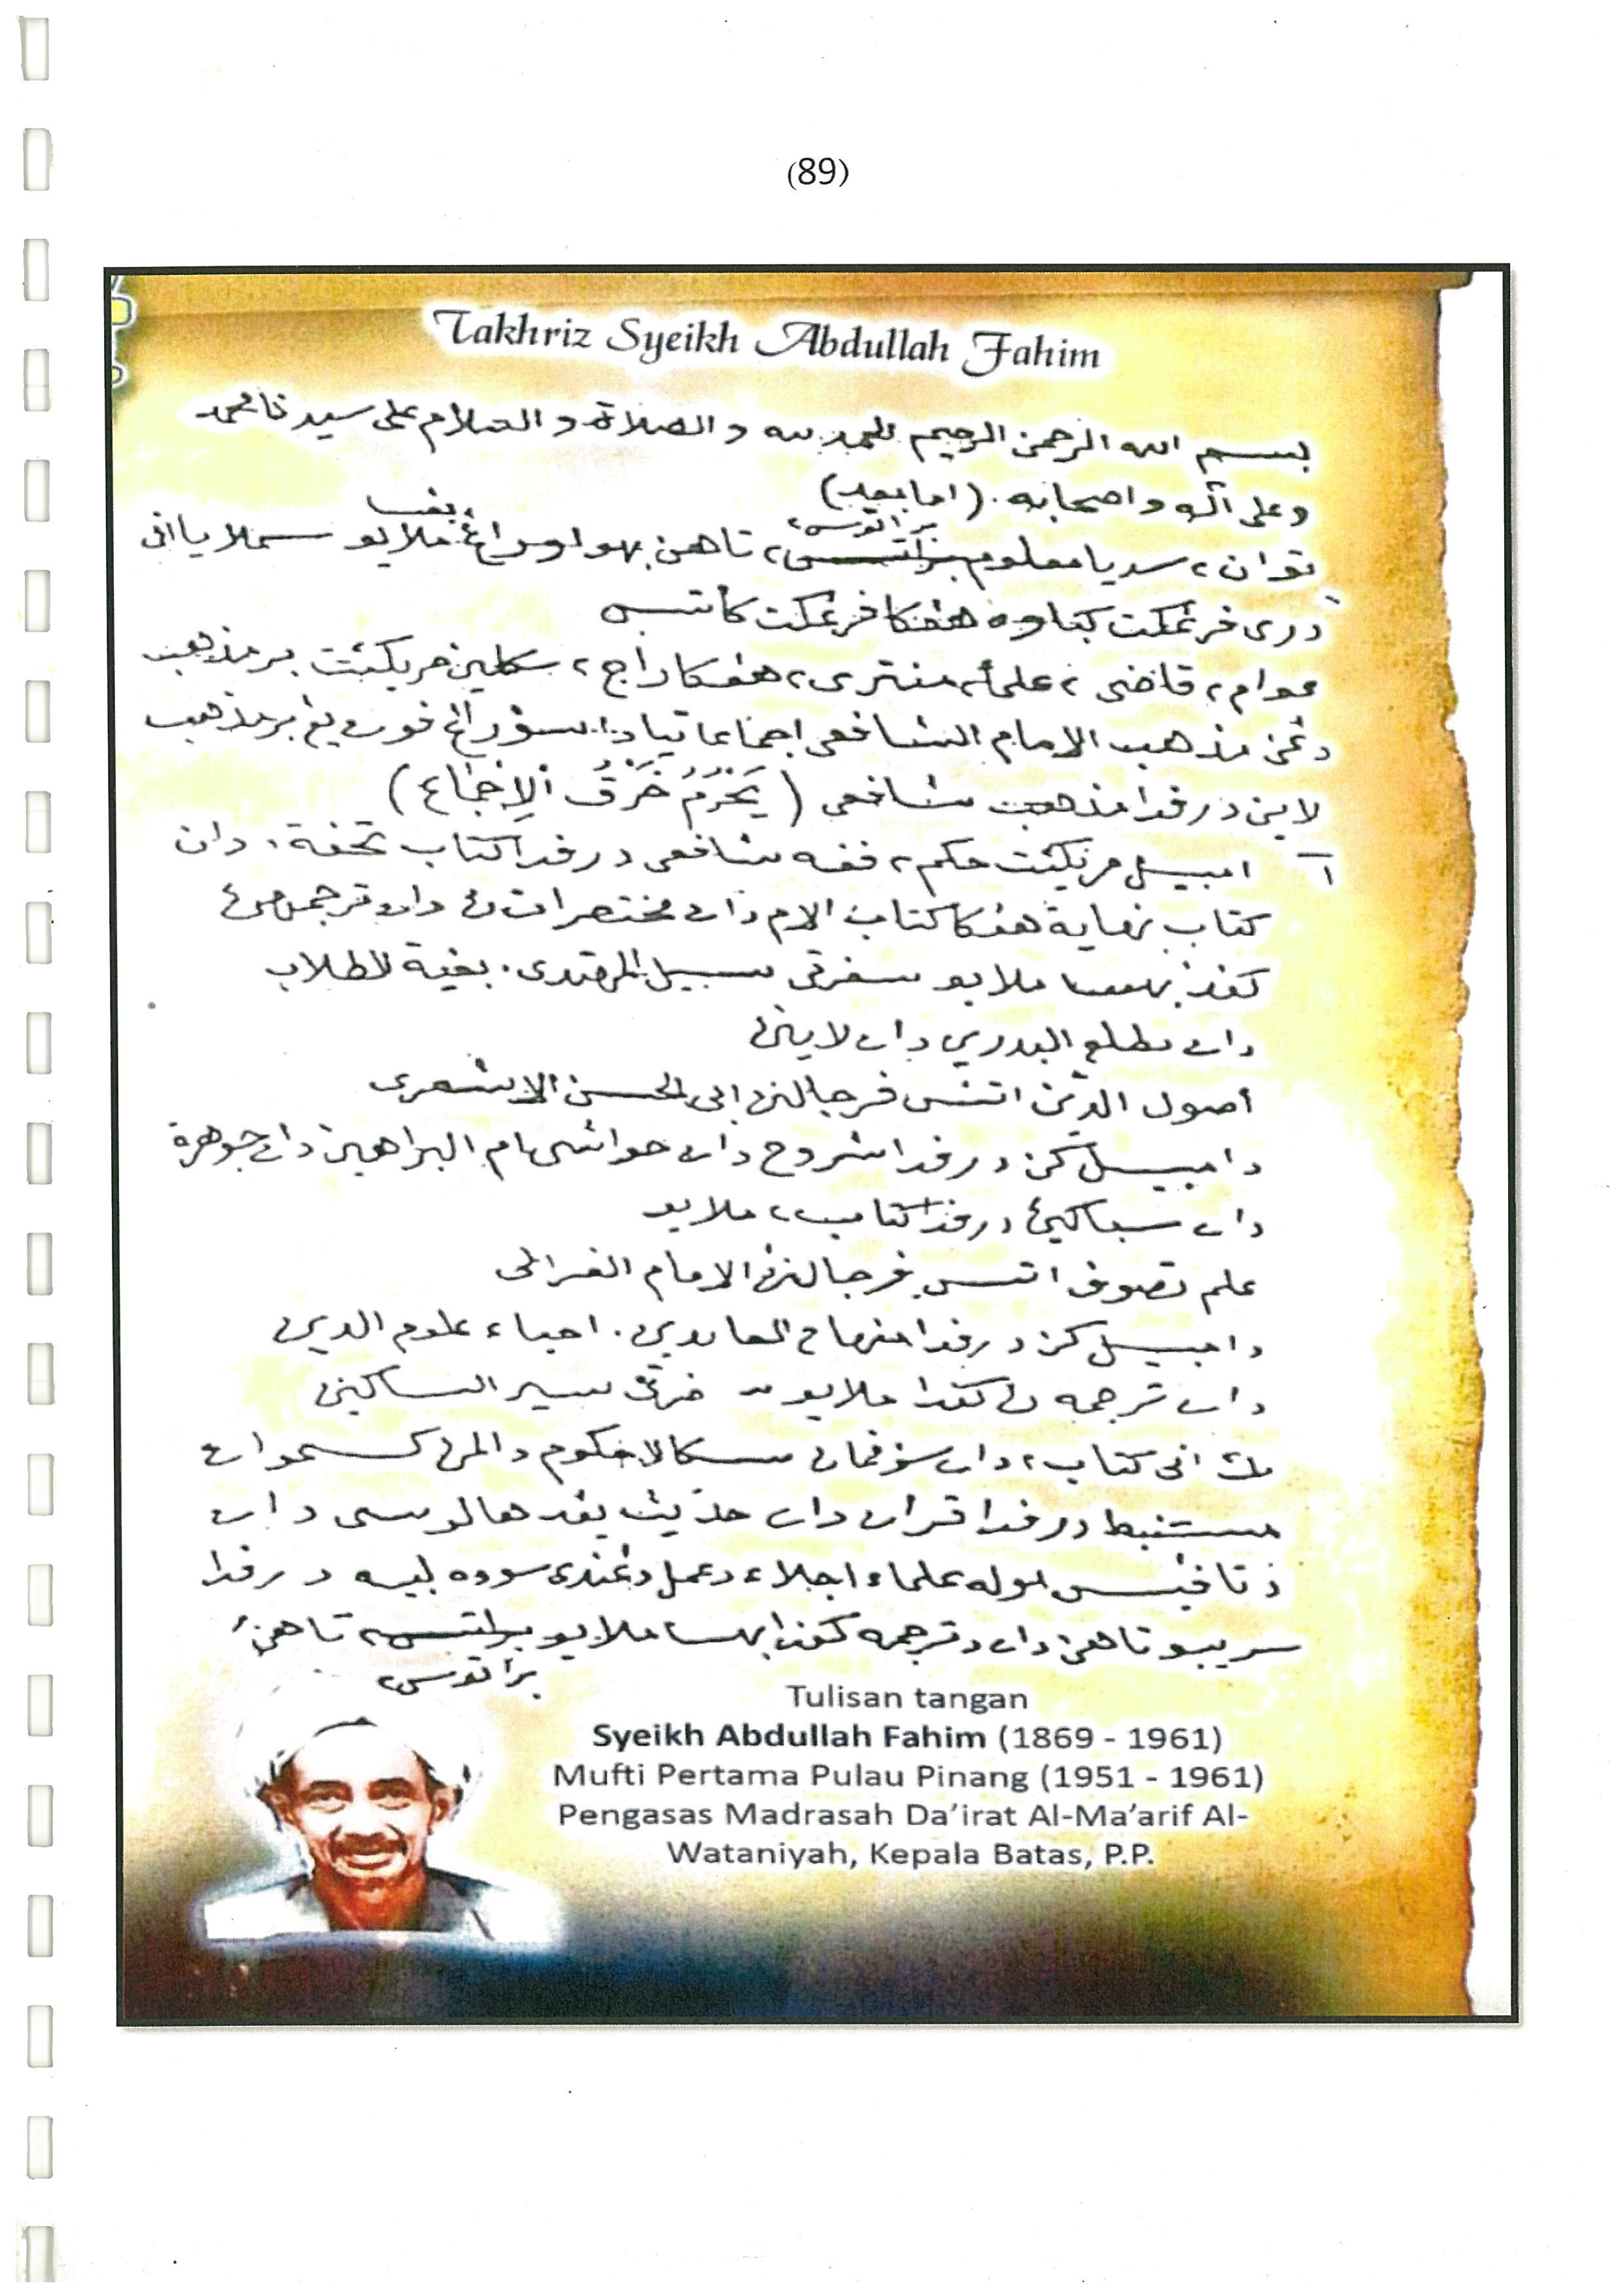 (89)
Takhriz Syeikh Abdullah Fahim
بسم الله الرحمن الرحيم الحمد لله و الصلاة و السلام على سيدنا محمد
وعلى آله واصحابه . (اما بعد)
بغسا
براتوس٢
توان٢ سديا معلوم براتس٢ تاهن بهوا اورانغ٢ ملايو سملايا اني
دري فرغكت كباوه هڠݢا فرغكت كاتس
عوام٢ قاضى٢ علماء٢ منتري٢ هڠݢا راج٢ سكلين مريكئت برمذهب
دڠن مذهب الإمام الشافعى اجماعا تياد سؤرڠ فون يڠ برمذهب
لاين درفدا مذهب شافعى (يَحْرُمُ خَرْقُ الْإِجْمَاع)
١ امبيل مريكئت حكم٢ فقه شافعى درفدا كتاب تحفة، دان
كتاب نهاية هڠݢا كتاب الام دان مختصرات ڽ دان ترجمهن ڽ
كفد بهسا ملايو سفرتي سبيل المهتدى. بغية الطلاب
دان مطلع البدرين دان لاينڽ
أصول الدين اتس فرجالنن ابى الحسن الاشعرى
دامبيلكن درفدا شروح دان حواشى ام البراهين دان جوهرة
دان سباݢيڽ درفدا كتاب٢ ملايو
علم تصوف اتس فرجالنن الامام الغزالى
دامبيلكن درفدا منهاج العابدين. احياء علوم الدين
دان ترجمه ڽ كفدا ملايو سفرتي سير السالكين
مك اني كتاب٢ دان سومفمان سكالا حكوم دالمڽ كسموان
مستنبط درفدا قران دان حديث يڠ هالوسى دان
دتافيس اوله علماء اجلاء دعمل دڠندى سوده لبيه درفدا
سريبو تاهن دان دترجمه كفدا بهسا ملايو براتس٢ تاهن٢
براتوس٢
Tulisan tangan
Syeikh Abdullah Fahim (1869 - 1961)
Mufti Pertama Pulau Pinang (1951 - 1961)
Pengasas Madrasah Da'irat Al-Ma'arif Al-
Wataniyah, Kepala Batas, P.P.